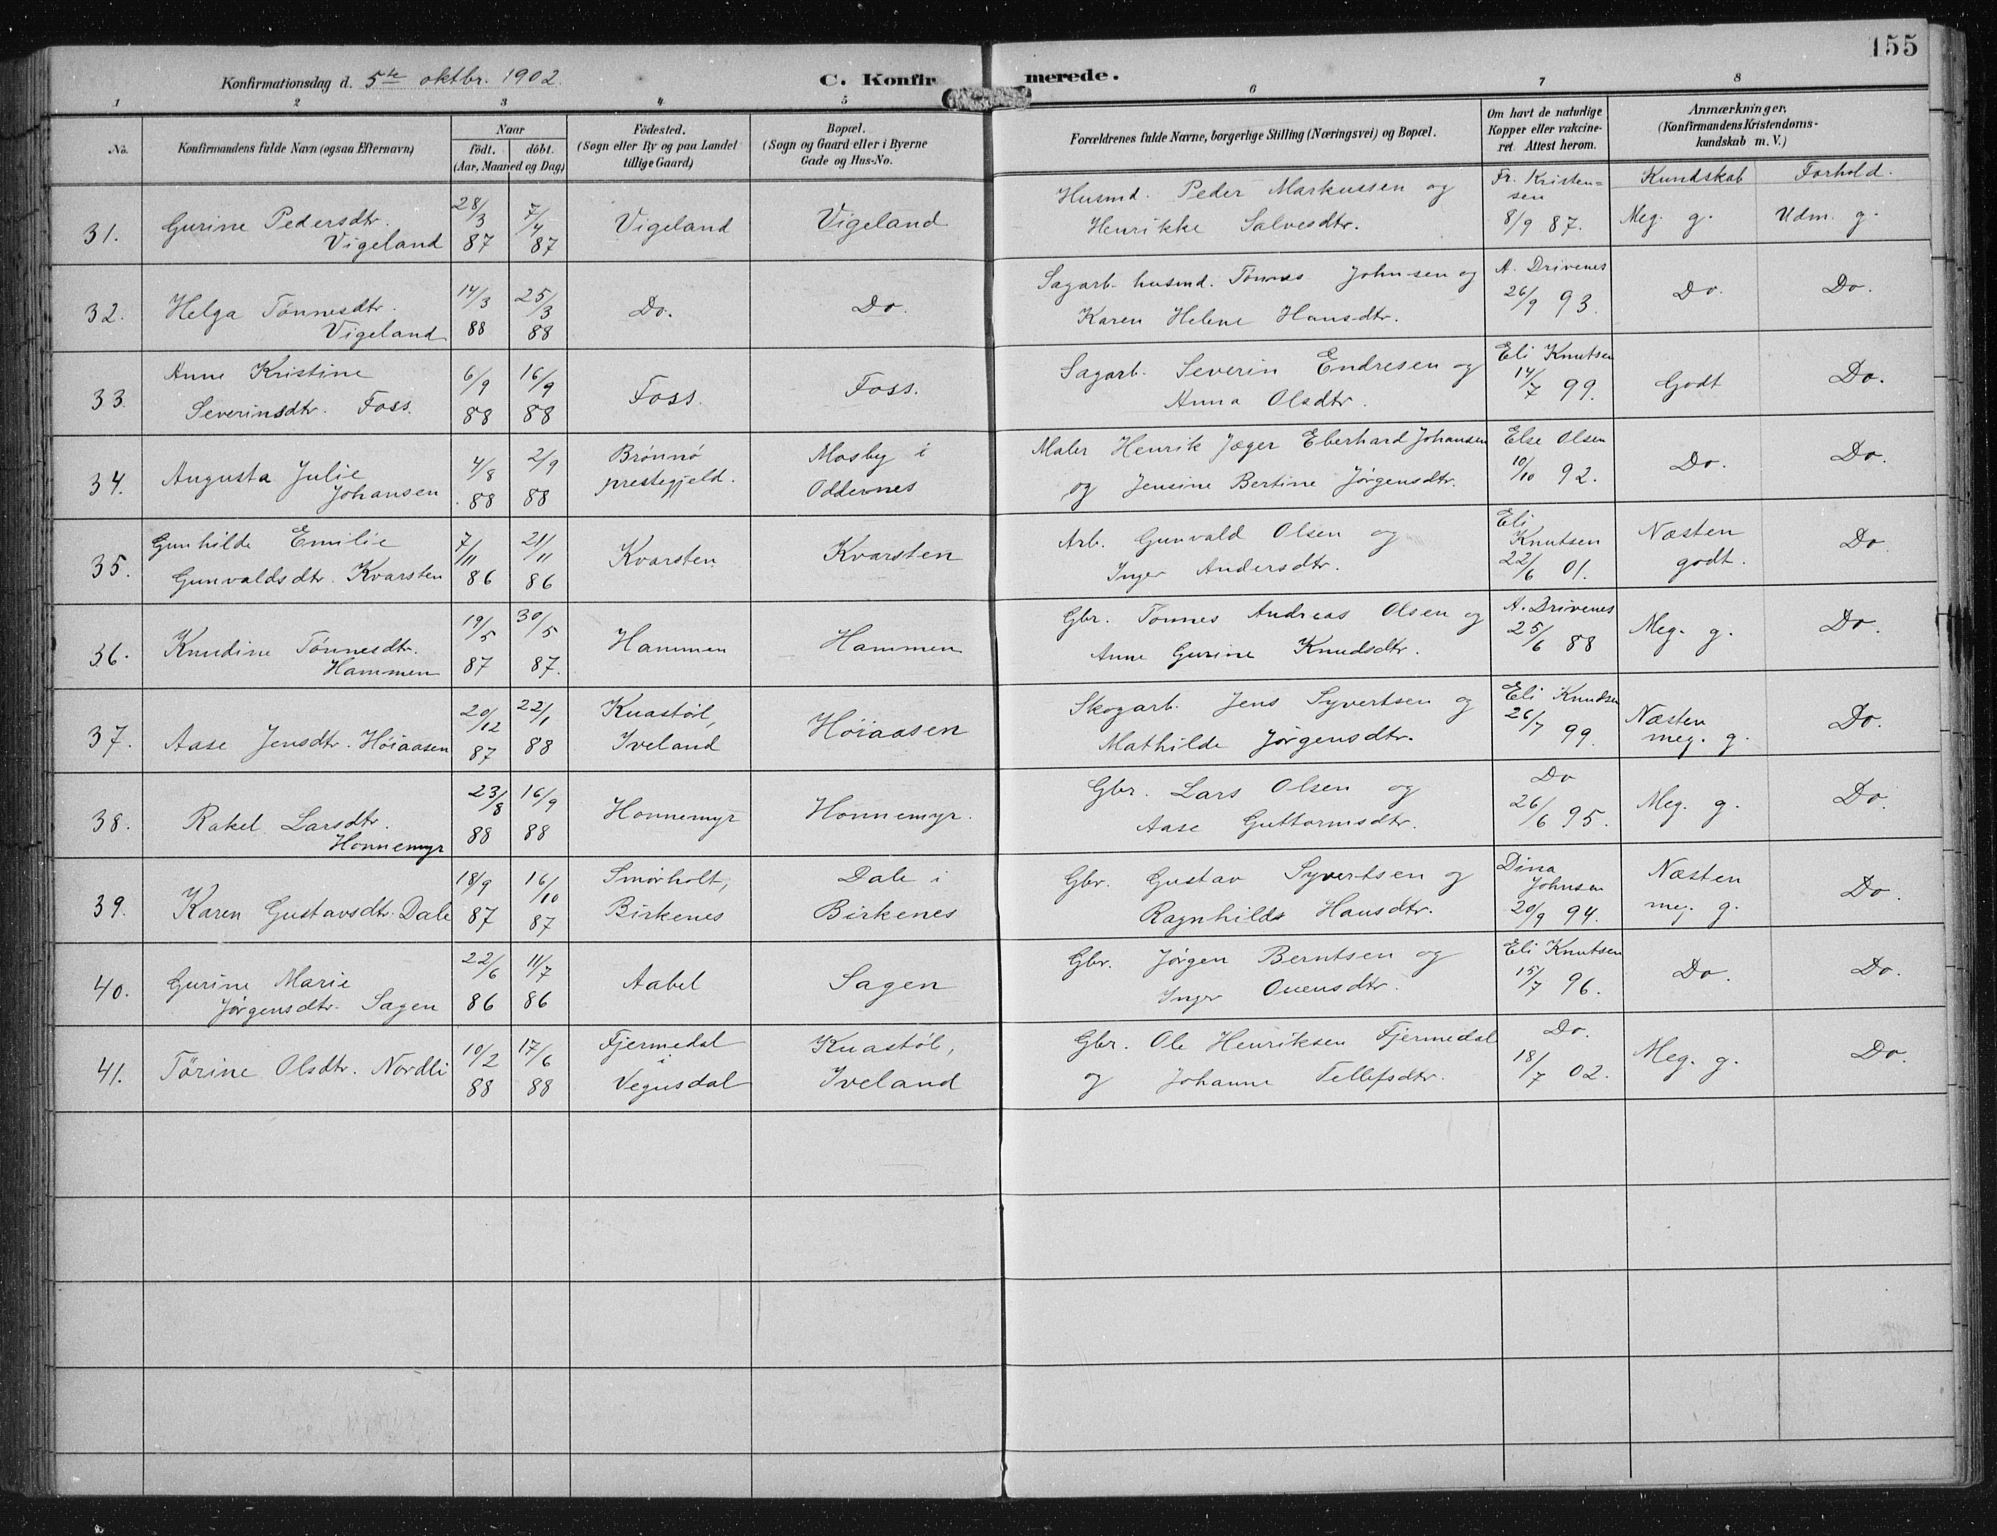 155
Konfirmationsdag d. 5te oktbr. 1902.
C. Konfirmerede.
1 2 3 4 5 6 7 8
No.
Konfirmandens fulde Navn (ogsaa Efternavn)
Naar
født. døbt.
(Aar, Maaned og Dag)
Fødested.
(Sogn eller By og paa Landet
tillige Gaard)
Bopæl.
(Sogn og Gaard eller i Byerne
Gade og Hus-No.
Forældrenes fulde Navne, borgerlige Stilling (Næringsvei) og Bopæl.
Om havt de naturlige
Kopper eller vakcine-
ret Attest herom.
Anmærkninger.
(Konfirmandens Kristendoms-
kundskab m. V.)
Kundskab Forhold.
31. Gurine Pedersdtr.
Vigeland
28/3 87 7/4 87
Vigeland
Vigeland
Husmd. Peder Markussen og
Henrikke Salvesdtr.
Fr. Kristen=
sen
8/9 87.
Meg. g. Udm. g.
32. Helga Tønnesdtr.
Vigeland
14/3 88 25/3 88
Do.
Do.
Sagarb. husmd. Tønnes Johnsen og
Karen Helene Hansdtr.
A. Drivenes
26/9 93.
Do. Do.
33. Anne Kristine
Severinsdtr. Foss.
6/9 88 16/9 88
Foss.
Foss.
Sagarb. Severin Endresen og
Anna Olsdtr.
Eli Knutsen
14/7 99.
Godt Do.
34. Augusta Julie
Johansen
4/8 88 2/9 88
Brønnø
prestegjeld.
Mosby i
Oddernes
Maler Henrik Jæger Eberhard Johansen
og Jensine Bertine Jørgensdtr.
Else Olsen
10/10 92.
Do. Do.
35. Gunhilde Emilie
Gunvaldsdtr. Kvarsten
7/11 86 21/11 86
Kvarsten
Kvarsten
Arb. Gunvald Olsen og
Inger Andersdtr.
Eli
Knutsen
22/6 01.
Næsten
godt.
Do
36. Knudine Tønnesdtr.
Hammen
19/5 87 30/5 87.
Hammen
Hammen
Gbr. Tønnes Andreas Olsen og
Anne Gurine Knudsdtr.
A. Drivenes
25/6 88
Meg. g. Do.
37. Aase Jensdtr. Høiaasen
20/12 87 22/1 88
Knastøl,
Iveland
Høiaasen
Skogarb. Jens Syvertsen og
Mathilde Jørgensdtr.
Eli Knudsen
26/7 99.
Næsten
meg. g.
Do.
38. Rakel Larsdtr.
Honnemyr
23/8 88 16/9 88
Honnemyr
Honnemyr.
Gbr. Lars Olsen og
Aase Guttormsdtr.
Do
26/6 95.
Meg. g. Do.
39. Karen Gustavsdtr. Dale
18/9 87 16/10 87
Smørholt,
Birkenes
Dale i
Birkenes
Gbr. Gustav Syvertsen og
Ragnhilds Hansdtr.
Dina
Johnsen
20/9 94.
Næsten
meg. g.
Do.
40. Gurine Marie
Jørgensdtr. Sagen
22/6 86 11/7 86
Aabel
Sagen
Gbr. Jørgen Berntsen og
Inger Ouensdtr.
Eli Knutsen
15/7 96.
Do. Do.
41. Tørine Olsdtr. Nordli
10/2 88 17/6 88
Fjermedal
i
Vegusdal
Knastøl,
Iveland
Gbr. Ole Henriksen Fjermedal
og Johanne Tellefsdtr.
Do.
18/7 02.
Meg. g. Do.